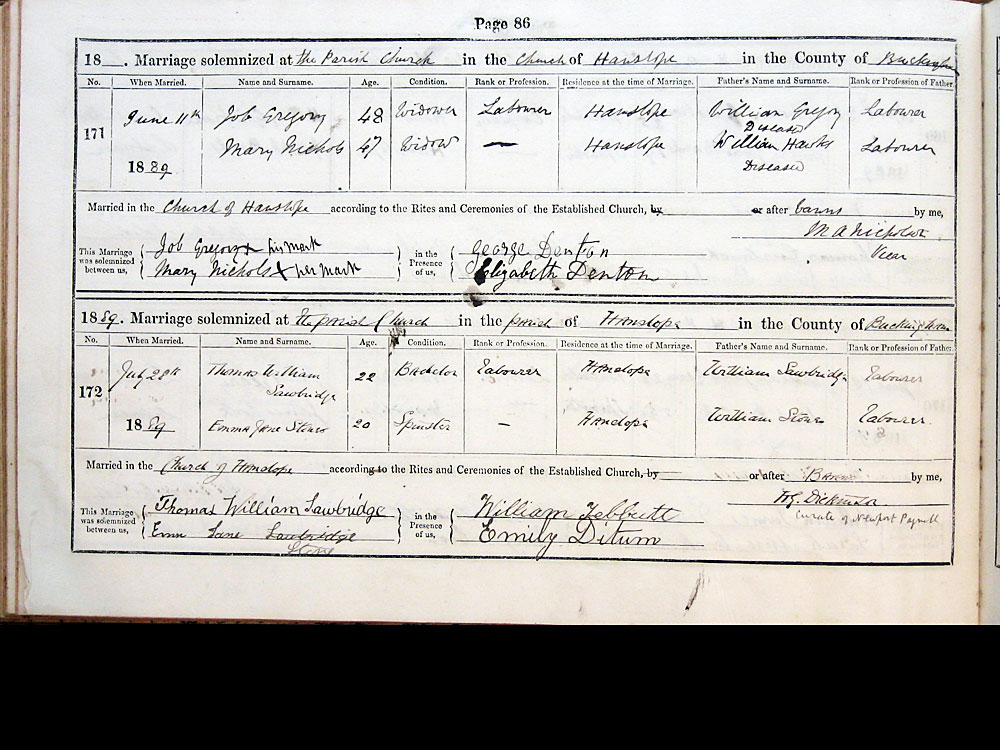 Page 86
18__. Marriage solemnized at the Parish Church in the Church of Hanslope in the County of Buckingham
No. When Married. Name and Surname. Age. Condition. Rank or Profession. Residence at the time of Marriage. Father's Name and Surname. Rank or Profession of Father.
171 June 11th Job Gregory 48 Widower Labourer Hanslope William Gregory Labourer
Diseased
Mary Nichols 47 Widow — Hanslope William Hawks Labourer
1889 Diseased
Married in the Church of Hanslope according to the Rites and Ceremonies of the Established Church, by or after banns by me,
M A Nicholson
Vicar
This Marriage was solemnized between us, Job Gregory x his mark in the Presence of us, George Denton
Mary Nichols x her mark Elizabeth Denton
1889. Marriage solemnized at the parish Church in the parish of Hanslope in the County of Buckingham
No. When Married. Name and Surname. Age. Condition. Rank or Profession. Residence at the time of Marriage. Father's Name and Surname. Rank or Profession of Father.
172 July 28th Thomas William Sawbridge 22 Bachelor Labourer Hanslope William Sawbridge Labourer
1889 Emma Jane 20 Spinster — Hanslope William Labourer
Married in the Church of Hanslope according to the Rites and Ceremonies of the Established Church, by or after Banns by me,
Dickinson
Curate of Newport Pagnell
This Marriage was solemnized between us, Thomas William Sawbridge in the Presence of us, William Tebbutt
Jane Sawbridge Emily Ditum